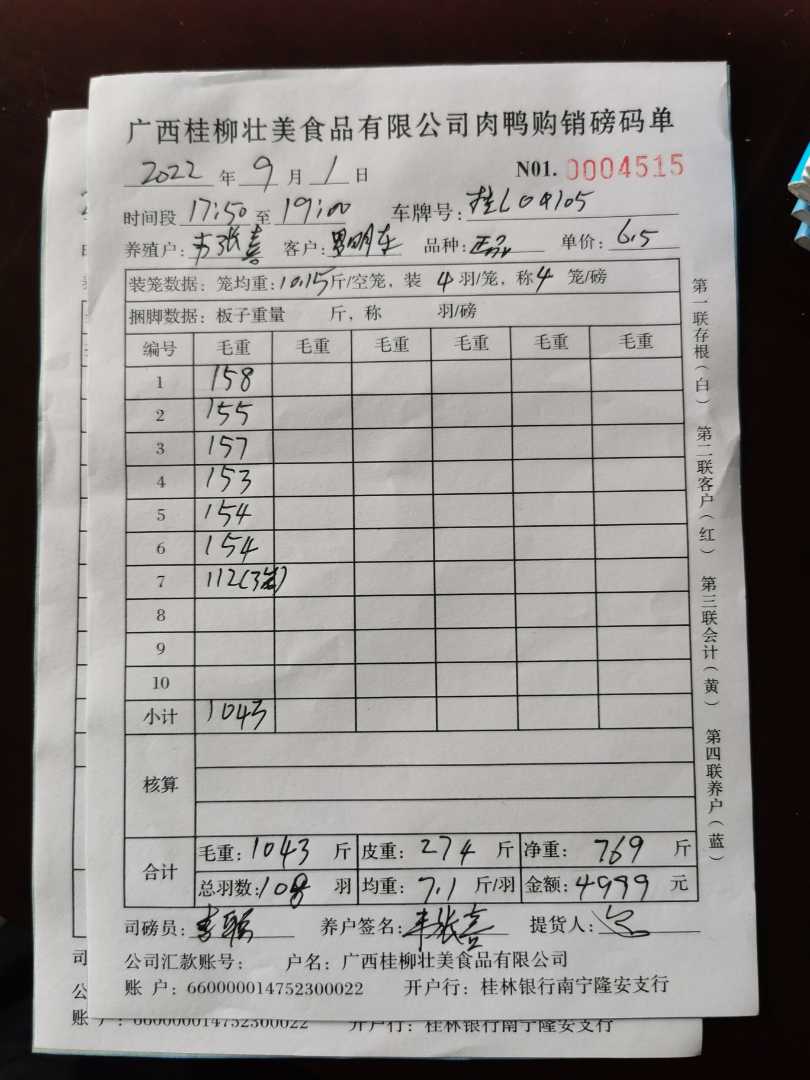 广西桂柳壮美食品有限公司肉鸭购销磅码单
2022 年 9 月 1 日 N01. 0004515
时间段 17:50 至 19:00 车牌号: 桂L04105
养殖户: 韦张喜 客户: 品种: 单价: 6.5
装笼数据: 笼均重: 10.15 斤/空笼, 装 4 羽/笼, 称 4 笼/磅
捆脚数据: 板子重量 斤, 称 羽/磅
编号 毛重 毛重 毛重 毛重 毛重 毛重
1 158
2 155
3 157
4 153
5 154
6 154
7 112(3笼)
8
9
10
小计 1043
核算
合计
毛重: 1043 斤 皮重: 274 斤 净重: 769 斤
总羽数: 108 羽 均重: 7.1 斤/羽 金额: 4999 元
司磅员: 养户签名: 韦张喜 提货人:
公司汇款账号: 户名: 广西桂柳壮美食品有限公司
账 户: 660000014752300022 开户行: 桂林银行南宁隆安支行
第一联存根(白) 第二联客户(红) 第三联会计(黄) 第四联养户(蓝)
司
公
账 户: 660000014752300022 开户行: 桂林银行南宁隆安支行